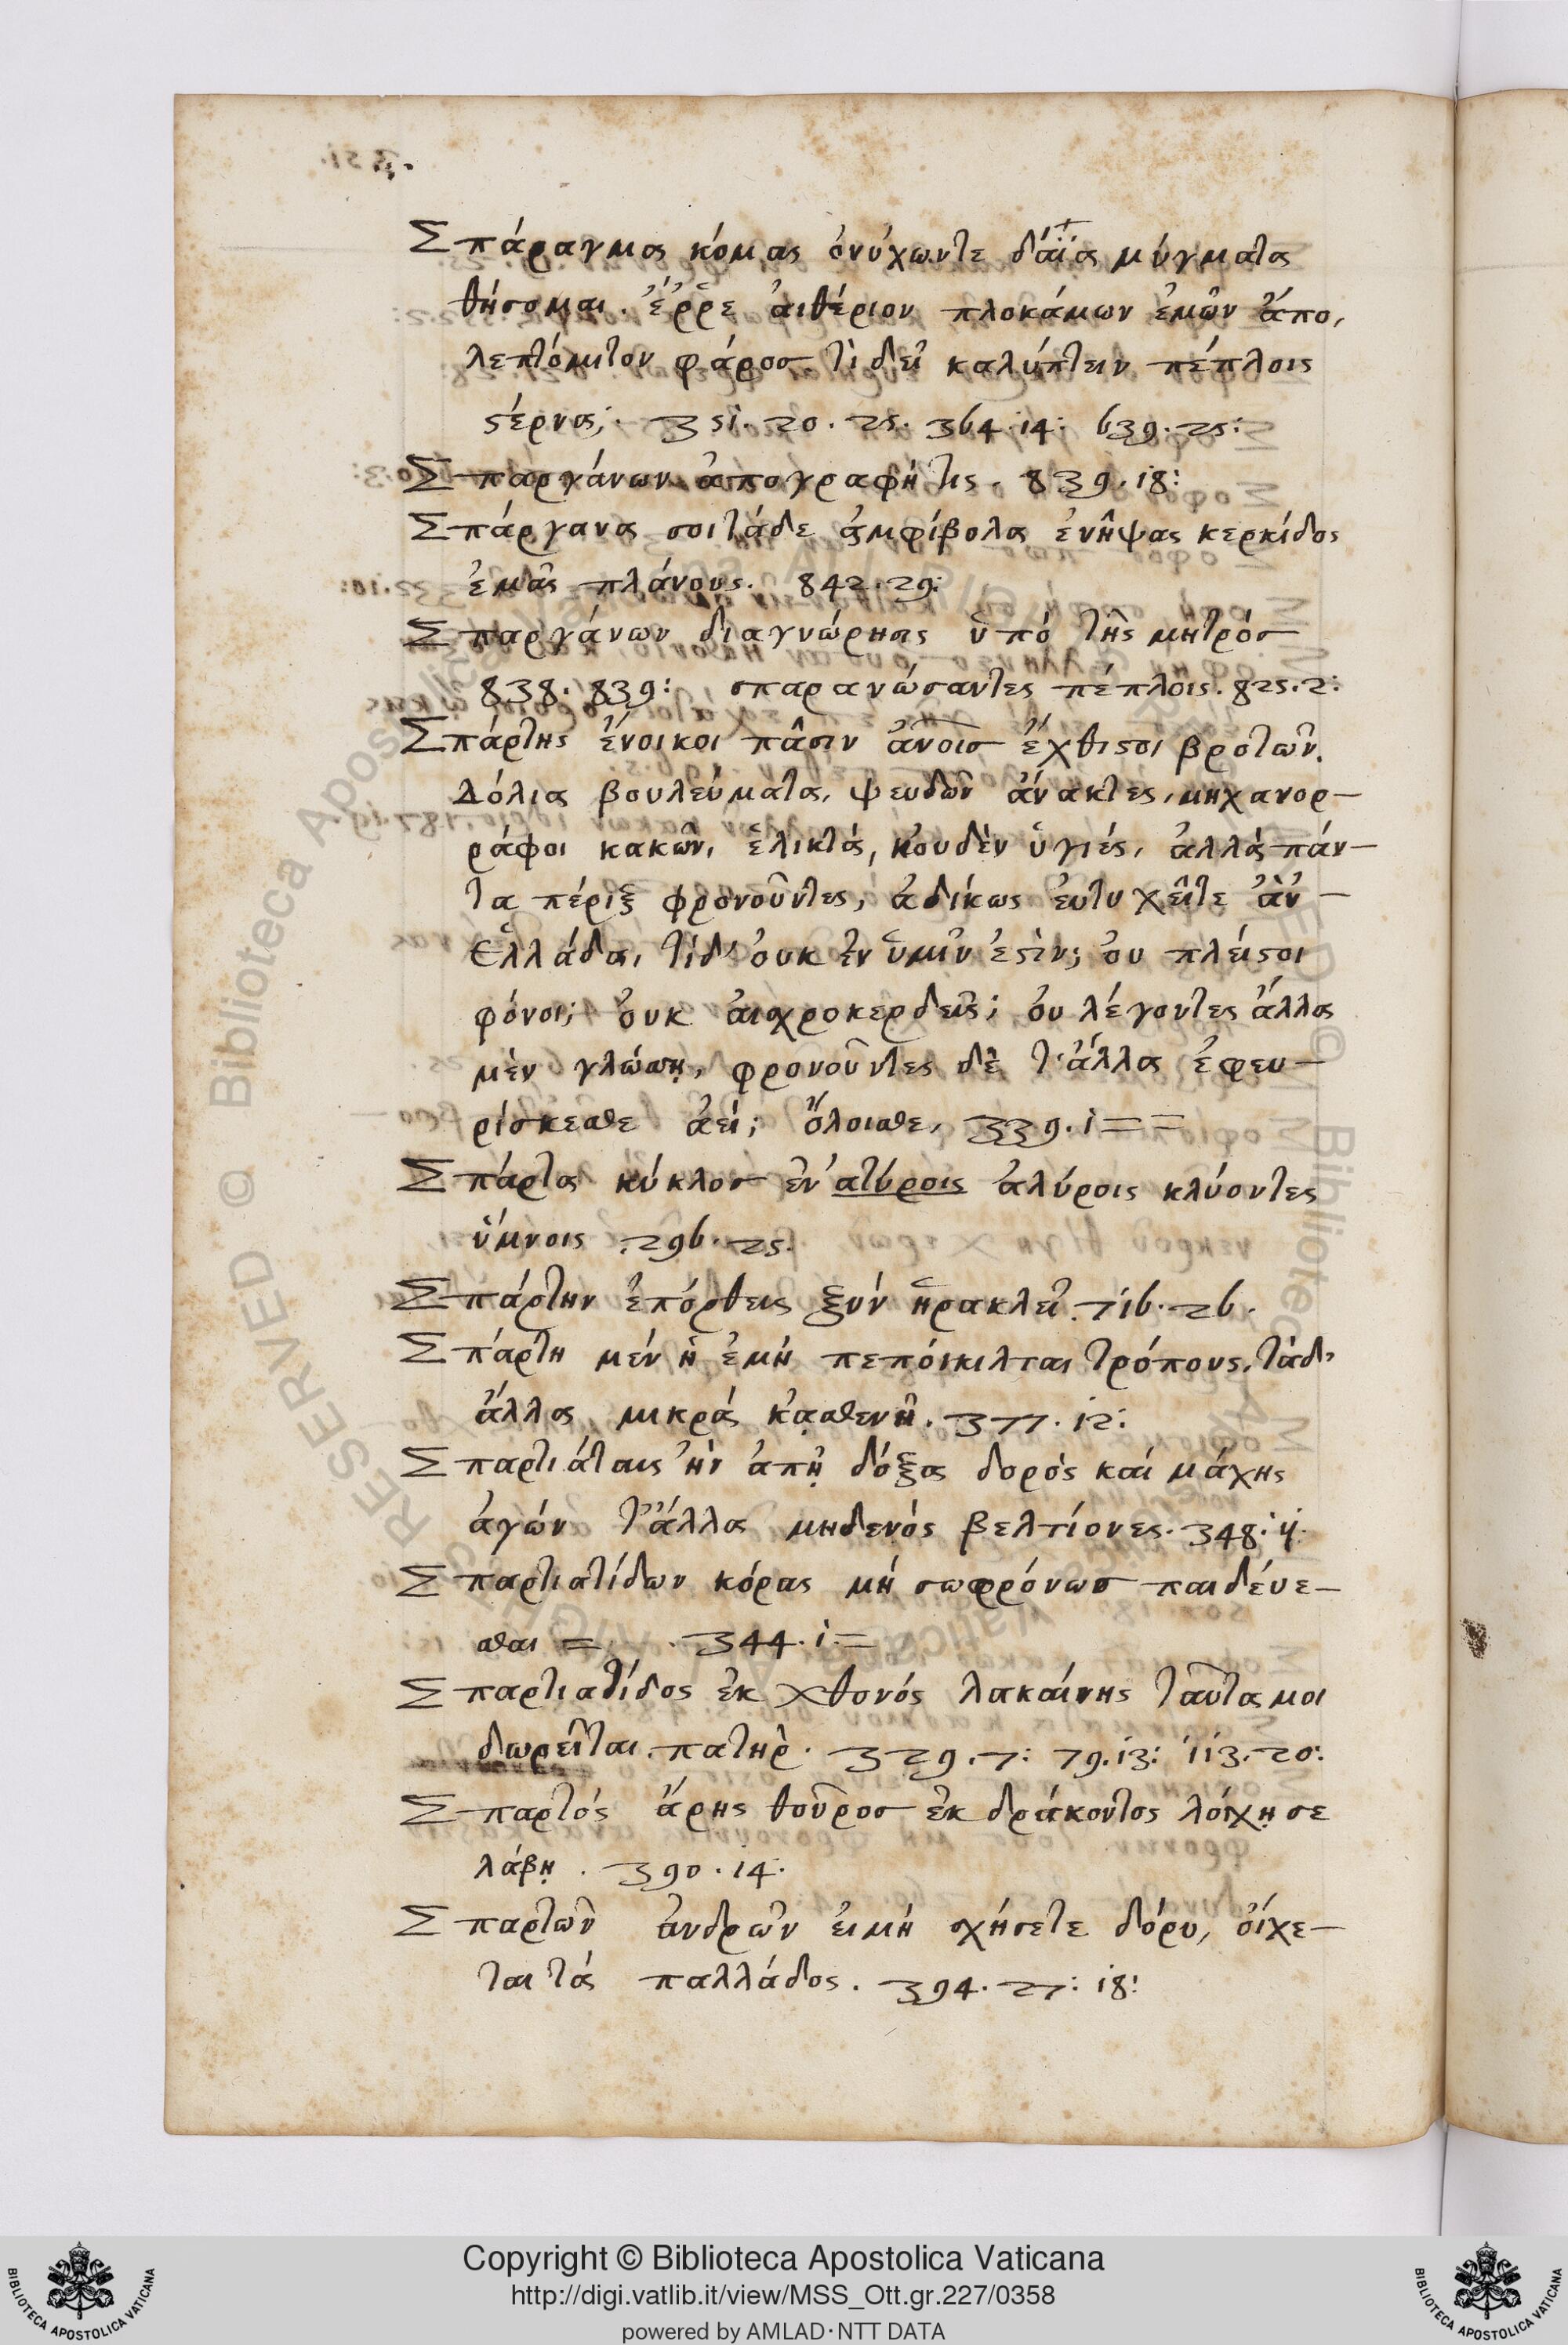 Σπάραγμα κόμας ὀνύχωντε δάϊα μύγματα
θήσομαι. ἔρρε ἀιθέριον πλοκάμων ἐμῶν ἄπο,
λεπτόμιτον φάρος. τὶ δεῖ καλύπτειν πέπλοις
ϛέρνα; 351. 20. 25. 364. 14: 639. 25:
Σπαργάνων ἀπογραφή τις. 839. 18:
Σπάργανα σοι τάδε ἀμφίβολα ἐνῆψας κερκίδος
ἐμᾶς πλάνους. 842. 29:
Σπαργάνων διαγνώρησις ὑπό τῆς μητρός
838. 839: σπαρανώσαντες πέπλοις. 825. 2:
Σπάρτης ἔνοικοι πᾶσιν ἀνοισ ἔχθιϛοι βροτῶν.
Δόλια βουλεύματα, ψευδῶν ἄνακτες, μηχανορ-
ράφοι κακῶν, ἑλικτά, κ'ουδὲν ὑγιές, ἀλλά πάν-
τα πέριξ φρονοῦντες, ἀδίκως ἐυτυχεῖτε ἀν'-
Ἑλλάδα, τί δ' ὀυκ ἐν ὑμῖν ἐϛὶν; ὀυ πλεῖϛοι
φόνοι; ὀυκ ἀισχροκερδεῖς; ὀυ λέγοντες ἄλλα
μὲν γλώσσῃ, φρονοῦντες δὲ τ' ἄλλα ἐφευ-
ρίσκεσθε ἀεί; ὄλοισθε, 339. 1 ==
Σπάρτα κύκλος ἐν' ατύροις ἀλύροις κλύοντες
ὕμνοις 296. 25.
Σπάρτην ἐπόρθεις ξυν ἡρακλεῖ. 716. 26.
Σπάρτη μέν ἡ ἐμή πεπόικιλται τρόπους, τὰ δ'
ἄλλα, μικρά κᾳσθενῆ. 377. 12:
Σπαρτιάταις ἠν ἀπῃ δόξα δορὸς καί μάχης
ἀγών τ' ἄλλα μηδενός βελτίονες. 348: 4.
Σπαρτιατίδων κόρας μή σωφρόνως παιδέυε-
σθαι = . 344. 1. =
Σπαρτιατίδος ἐκ χθονός λακάινης ταῦτα μοι
δωρεῖται. πατηρ. 329. 7: 79. 13: 113. 20:
Σπαρτός ἄρης θοῦρος ἐκ δράκοντος λόγχῃ σε
λάβῃ. 390. 14.
Σπαρτῶν ἀνδρῶν ἐι μή σχήσετε δόρυ, ὀίχε-
ται τά παλλάδος. 394. 27: 18:
Copyright © Biblioteca Apostolica Vaticana
http://digi.vatlib.it/view/MSS_Ott.gr.227/0358
powered by AMLAD·NTT DATA
BIBLIOTECA APOSTOLICA VATICANA
BIBLIOTECA APOSTOLICA VATICANA